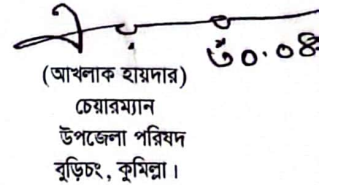 ৩০.০৪
(আখলাক হায়দার)
চেয়ারম্যান
উপজেলা পরিষদ
বুড়িচং, কুমিল্লা।